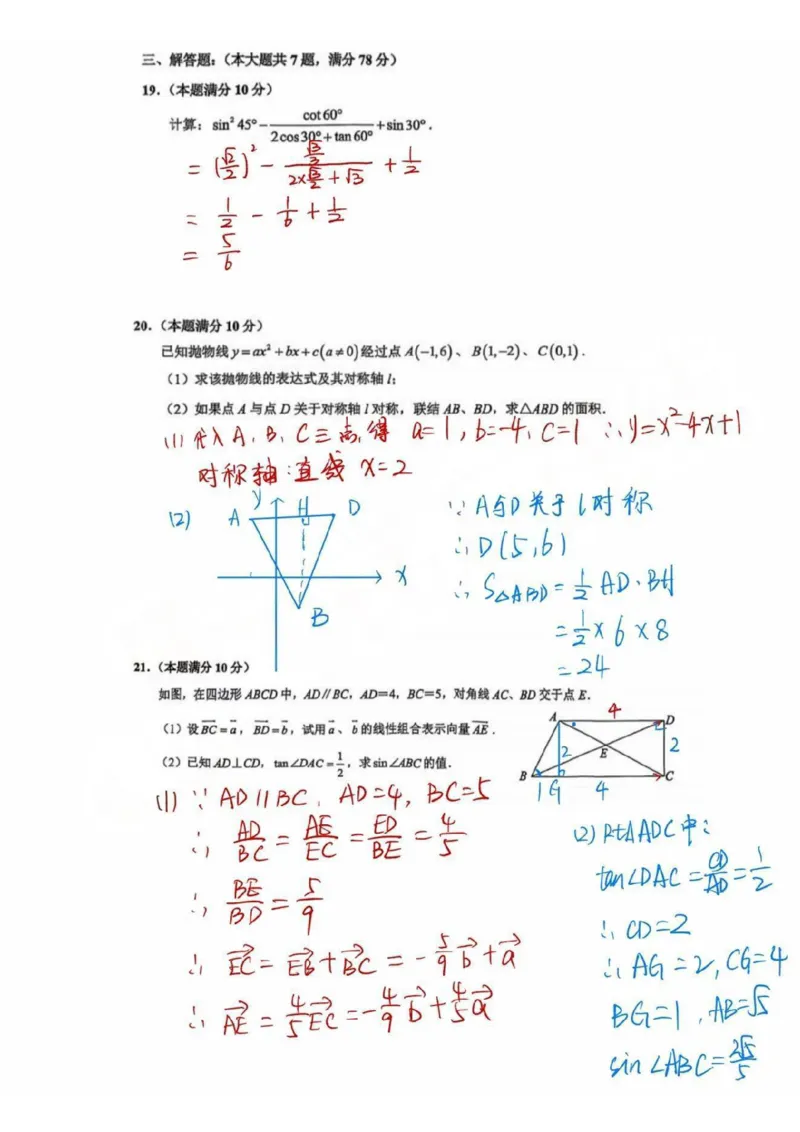 三、解答题：（本大题共 7 题，满分 78 分）
19.（本题满分 10 分）
计算：sin² 45° − cot 60° / (2cos 30° + tan 60°) + sin 30°.
= (√2/2)² − (√3/3) / (2×√3/2 + √3) + 1/2
= 1/2 − 1/6 + 1/2
= 5/6
20.（本题满分 10 分）
已知抛物线 y=ax²+bx+c(a≠0) 经过点 A(−1,6)、B(1,−2)、C(0,1).
（1）求该抛物线的表达式及其对称轴 l；
（2）如果点 A 与点 D 关于对称轴 l 对称，联结 AB、BD，求△ABD 的面积.
(1) 代入 A、B、C 三点, 得 a=1, b=-4, c=1 ∴ y=x²-4x+1
对称轴：直线 x=2
(2)
y
A H D
x
B
∵ A与D关于 l 对称
∴ D(5,6)
∴ S△ABD = 1/2 AD·BH
= 1/2 × 6 × 8
= 24
21.（本题满分 10 分）
如图，在四边形 ABCD 中，AD∥BC，AD=4，BC=5，对角线 AC、BD 交于点 E.
（1）设 BC→ = a→，BD→ = b→，试用 a→、b→ 的线性组合表示向量 AE→.
（2）已知 AD⊥CD，tan∠DAC = 1/2，求 sin∠ABC 的值.
4
A D
2 E 2
B C
1 G 4
(1) ∵ AD∥BC, AD=4, BC=5
∴ AD/BC = AE/EC = ED/BE = 4/5
∴ BE/BD = 5/9
∴ EC→ = EB→ + BC→ = −5/9 b→ + a→
∴ AE→ = 4/5 EC→ = −4/9 b→ + 4/5 a→
(2) Rt△ADC中：
tan∠DAC = CD/AD = 1/2
∴ CD=2
∴ AG=2, CG=4
BG=1, AB=√5
sin∠ABC = 2√5/5